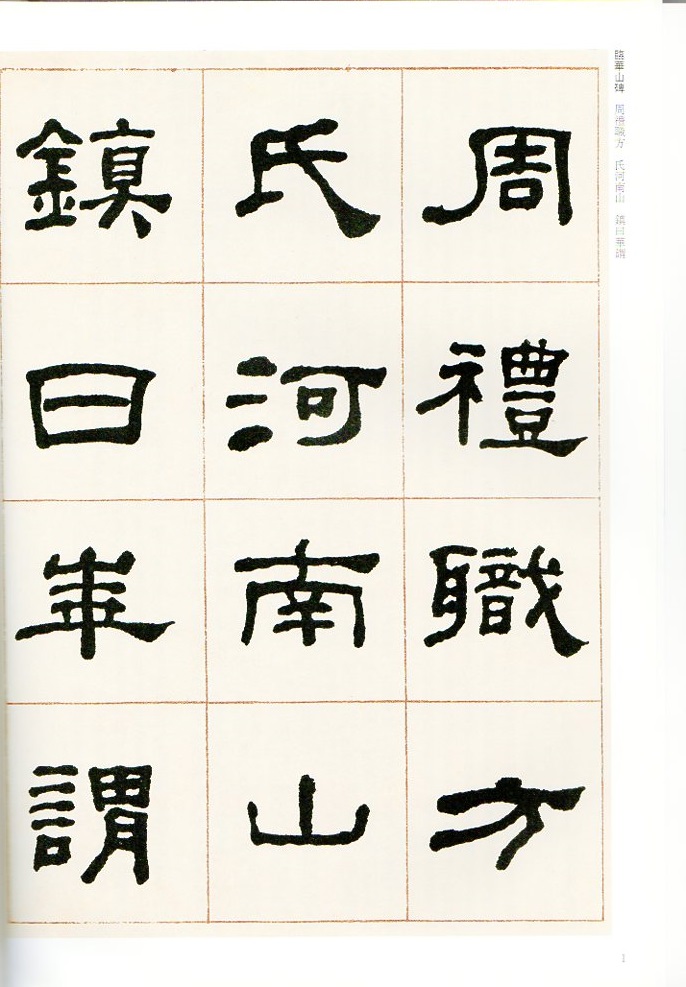 臨華山碑 周禮職方 氏河南山 鎮曰華謂
周禮職方
氏河南山
鎮曰華謂
1